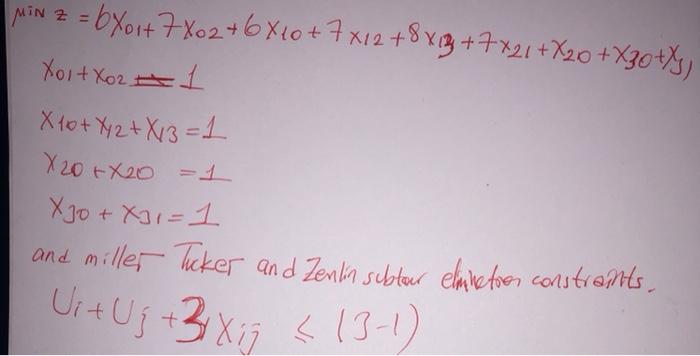 MiN z = 6X01+7X02+6X10+7X12+8X13+7X21+X20+X30+X31
X01+X02 = 1
X10+X12+X13=1
X20+X20 =1
X30+X31=1
and miller Tucker and Zemlin subtour elimination constraints.
Ui+Uj+3Xij ≤ (3-1)